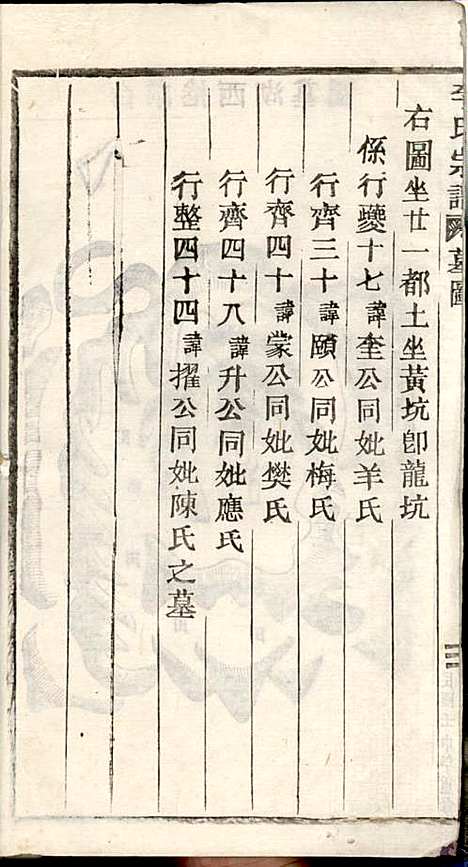 李氏宗譜 墓圖
右圖坐廿一都土坐黃坑卽龍坑
係行夔十七諱奎公同妣羊氏
行齊三十諱頤公同妣梅氏
行齊四十諱蒙公同妣樊氏
行齊四十八諱升公同妣應氏
行整四十四諱擢公同妣陳氏之墓